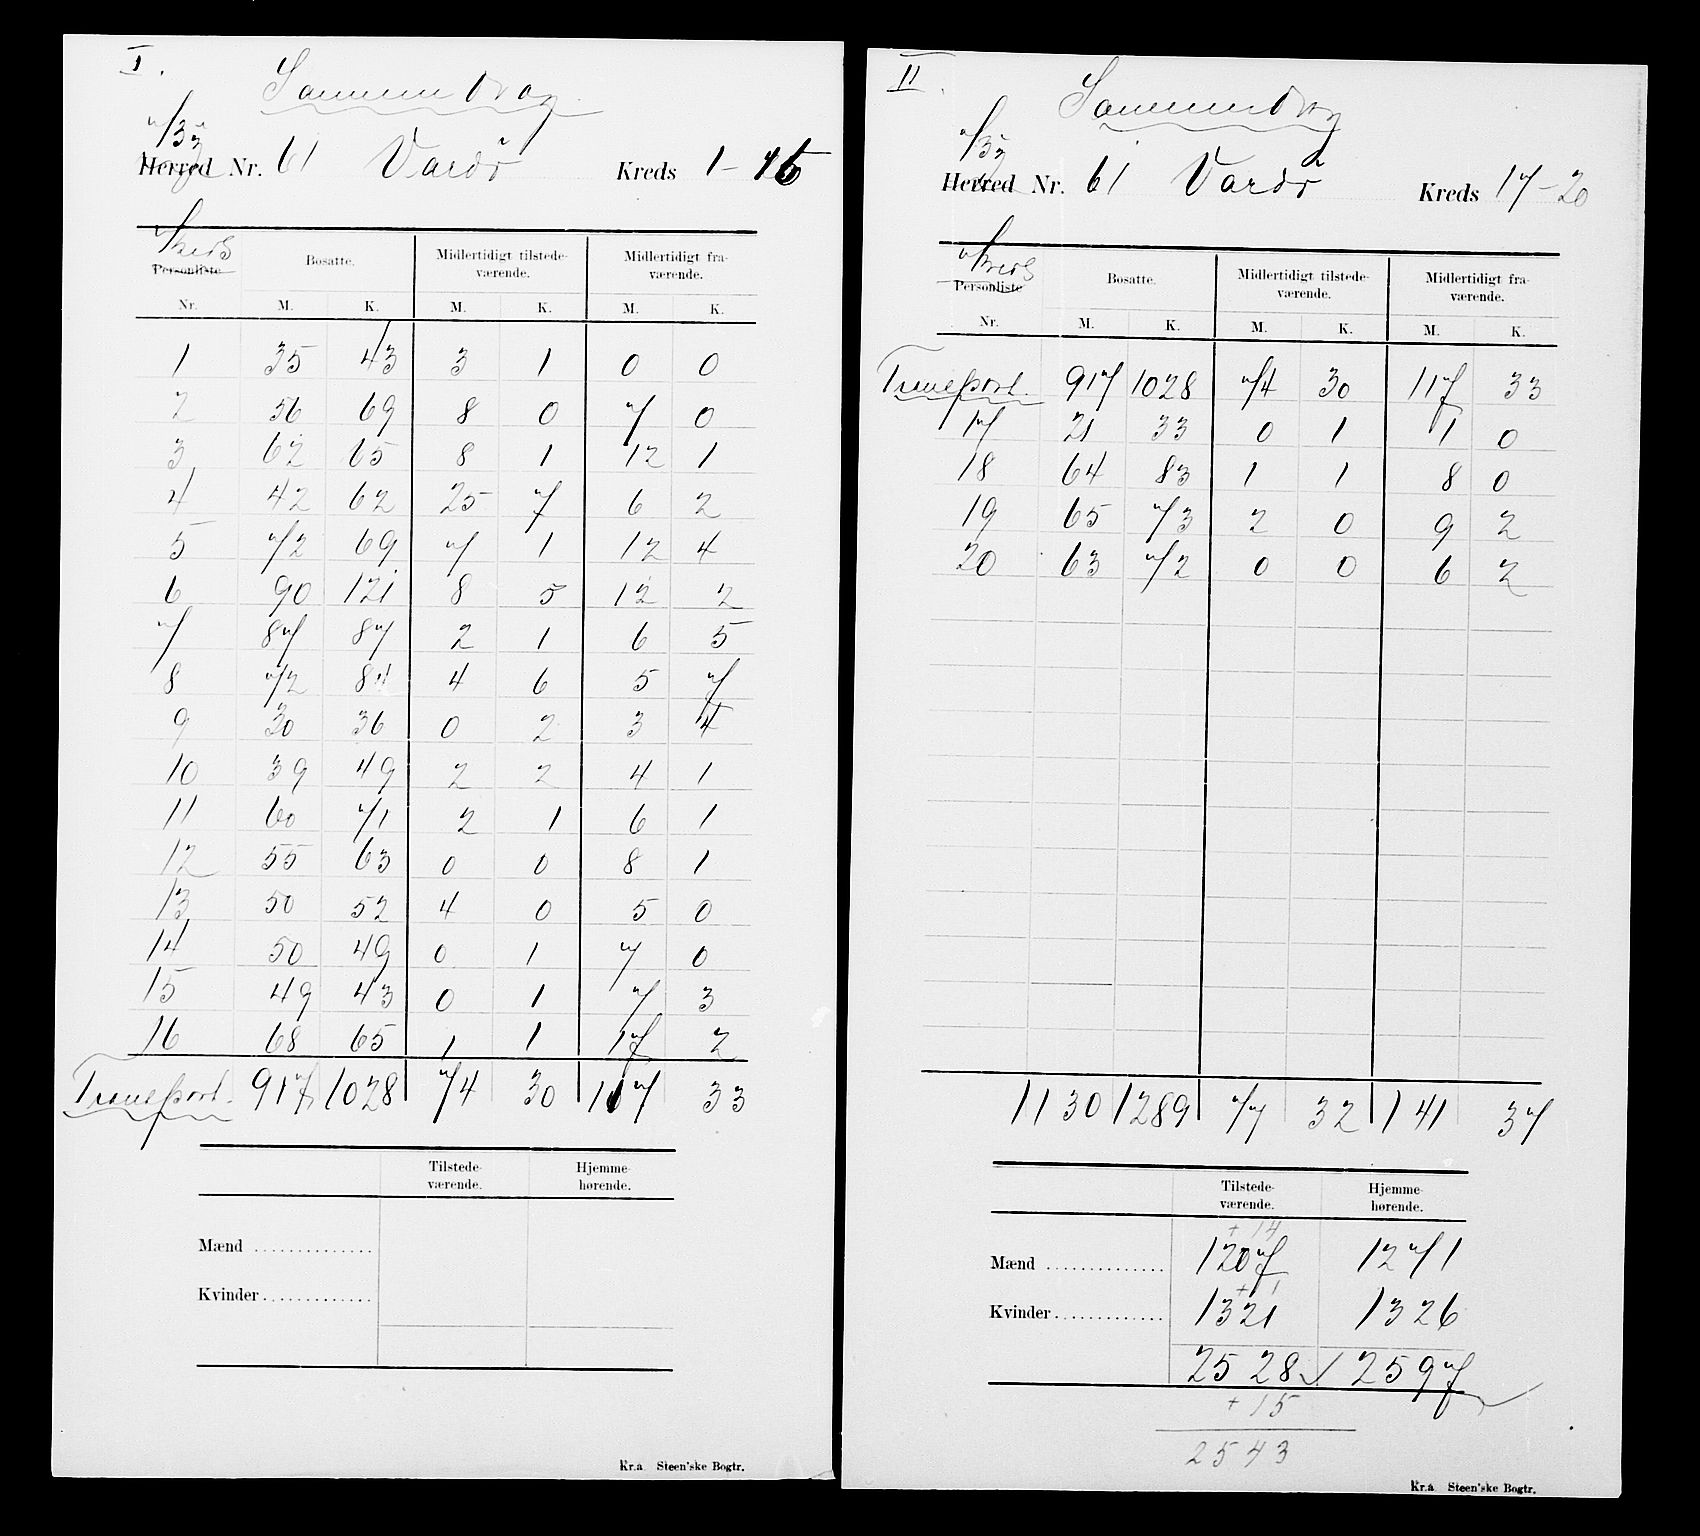 I.
Sammendrag.
By
Herred Nr. 61 Vardö Kreds 1-16
Kreds
Personliste Bosatte. Midlertidigt tilstede-
værende. Midlertidigt fra-
værende.
Nr. M. K. M. K. M. K.
1 35 43 3 1 0 0
2 56 69 8 0 7 0
3 62 65 8 1 12 1
4 42 62 25 7 6 2
5 72 69 7 1 12 4
6 90 121 8 5 12 2
7 87 87 2 1 6 5
8 72 84 4 6 5 7
9 30 36 0 2 3 4
10 39 49 2 2 4 1
11 60 71 2 1 6 1
12 55 63 0 0 8 1
13 50 52 4 0 5 0
14 50 49 0 1 7 0
15 49 43 0 1 7 3
16 68 65 1 1 17 2
Transport. 917 1028 74 30 117 33
Tilstede-
værende. Hjemme-
hørende.
Mænd ..............
Kvinder.............
Kr.a Steen'ske Bogtr.
II.
Sammendrag
By
Herred Nr. 61 Vardö Kreds 17-20
Kreds
Personliste Bosatte. Midlertidigt tilstede-
værende. Midlertidigt fra-
værende.
Nr. M. K. M. K. M. K.
Transport. 917 1028 74 30 117 33
17 21 33 0 1 1 0
18 64 83 1 1 8 0
19 65 73 2 0 9 2
20 63 72 0 0 6 2
1130 1289 77 32 141 37
Tilstede-
værende. Hjemme-
hørende.
+ 14
Mænd .............. 1207 1271
+ 1
Kvinder............. 1321 1326
2528 ✓ 2597
+ 15
2543
Kr.a Steen'ske Bogtr.